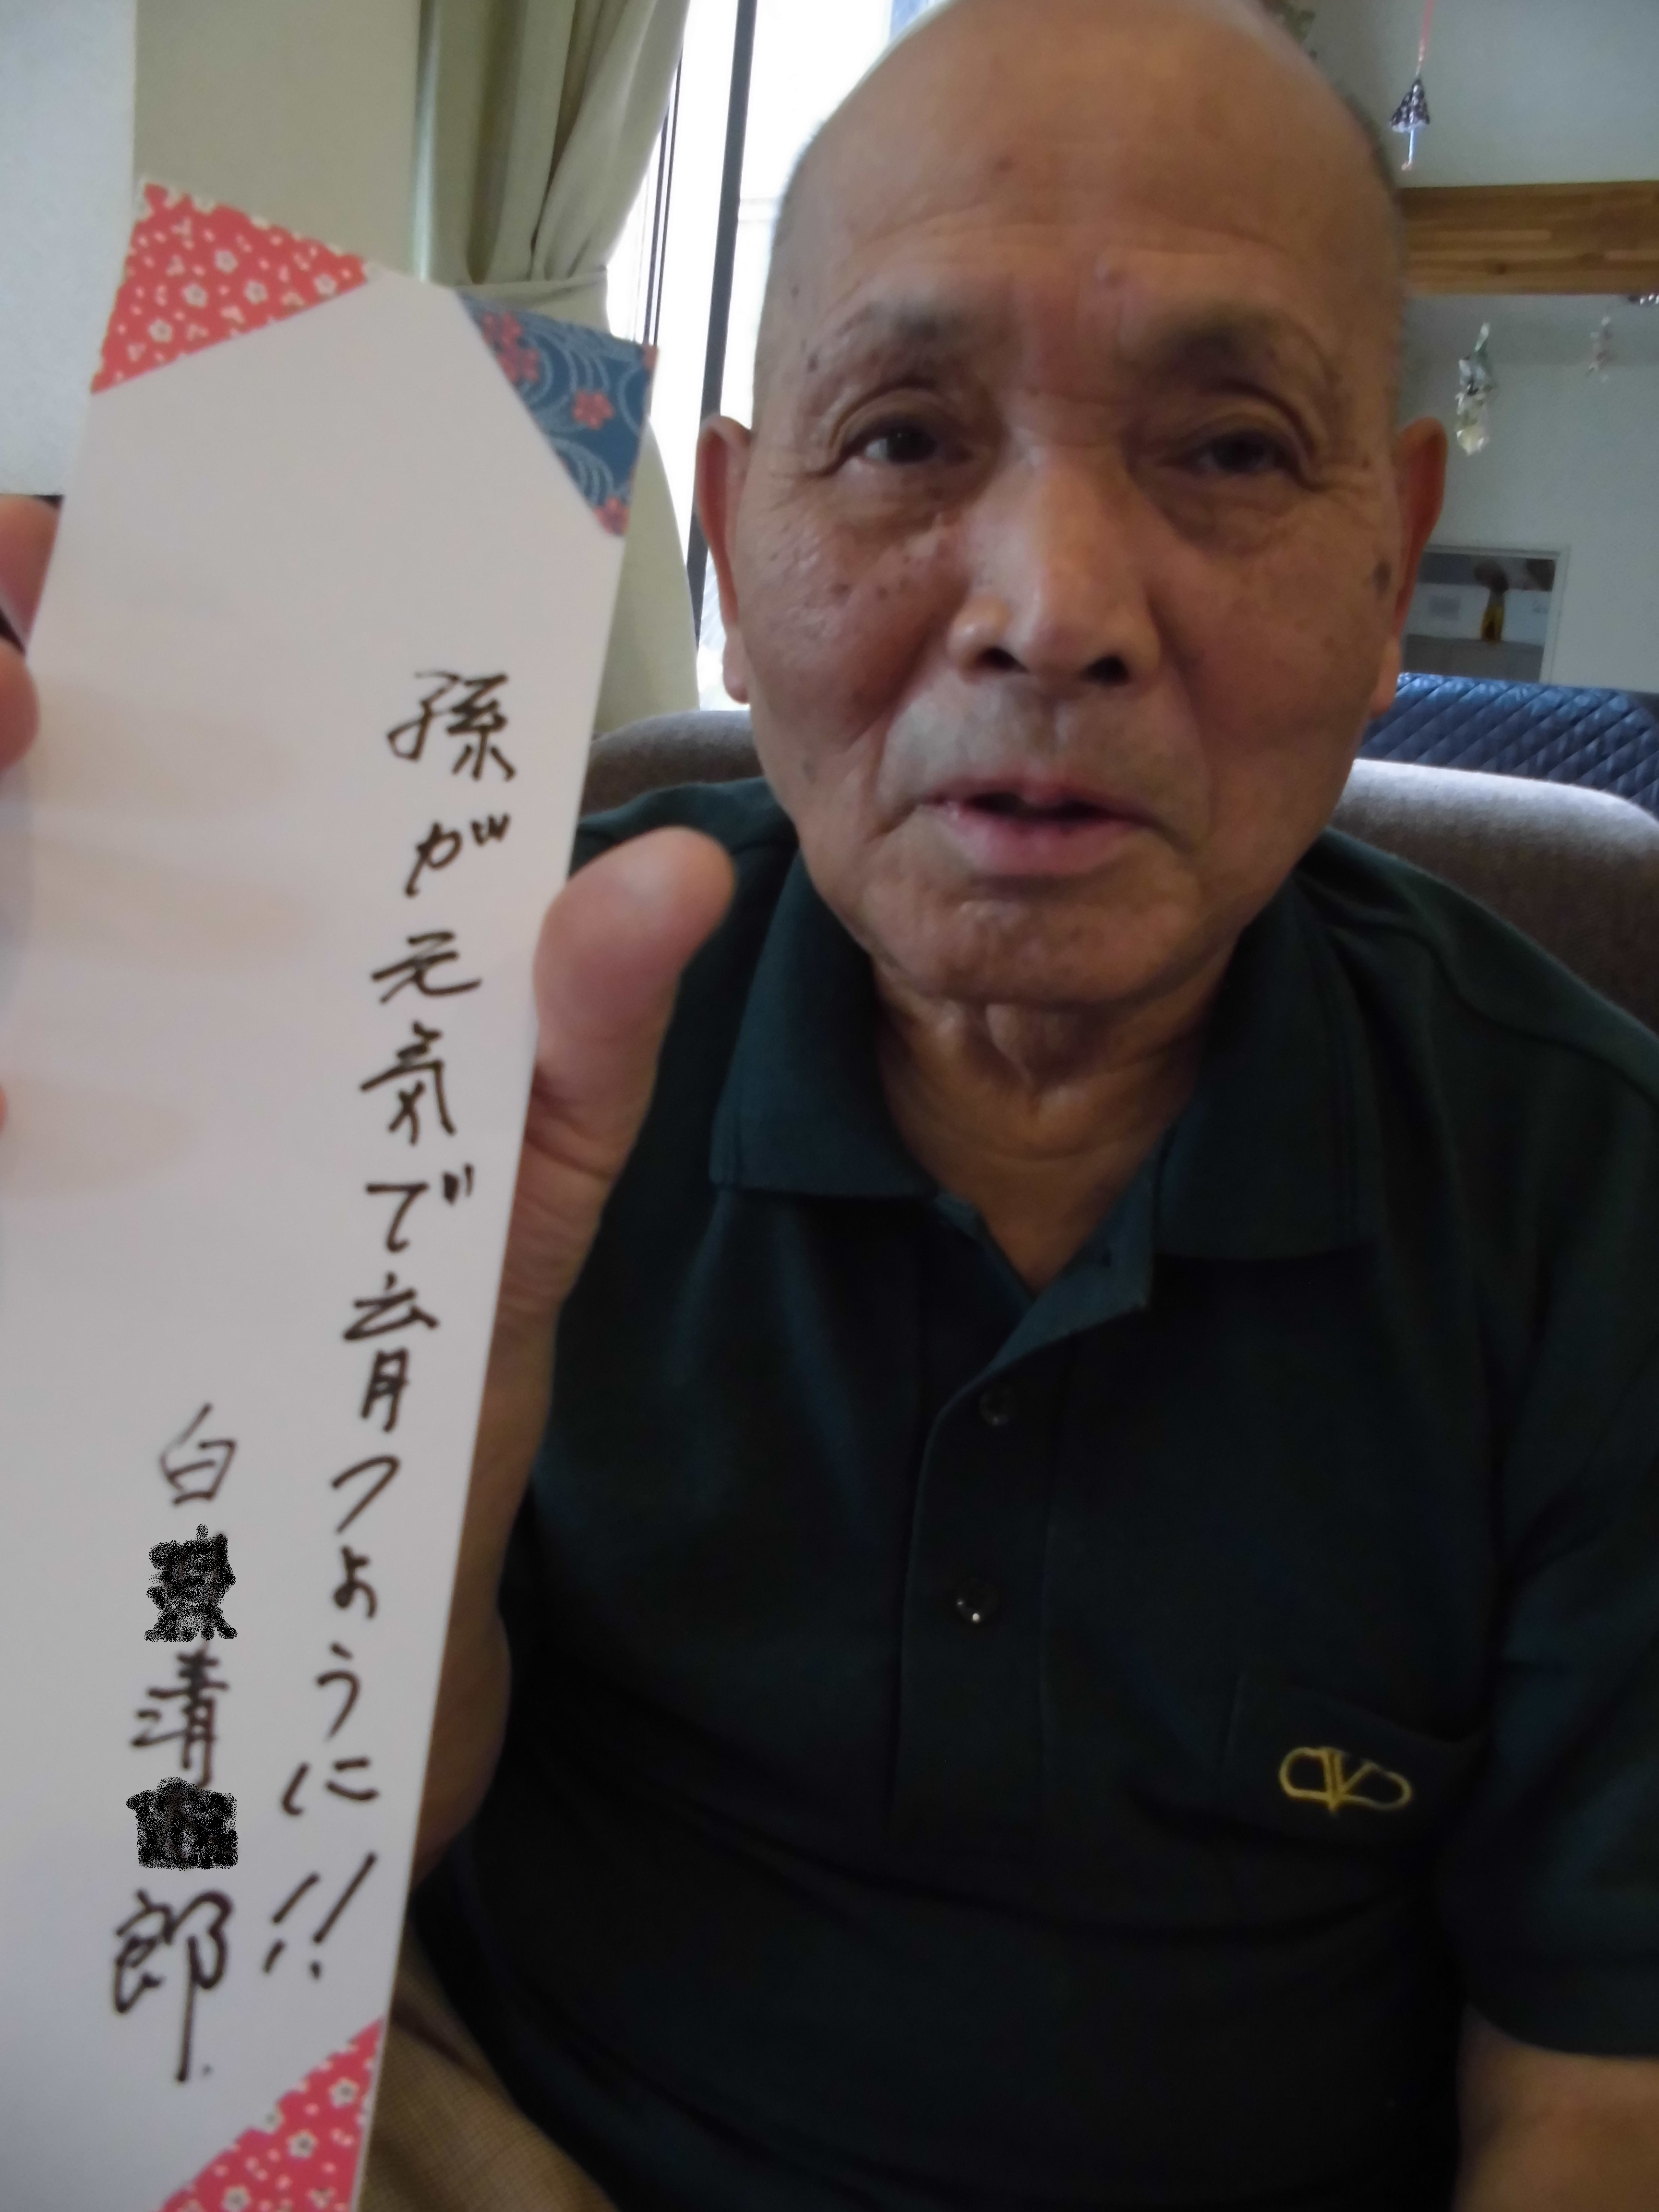 孫が元気で育つように!!
白 清 郎